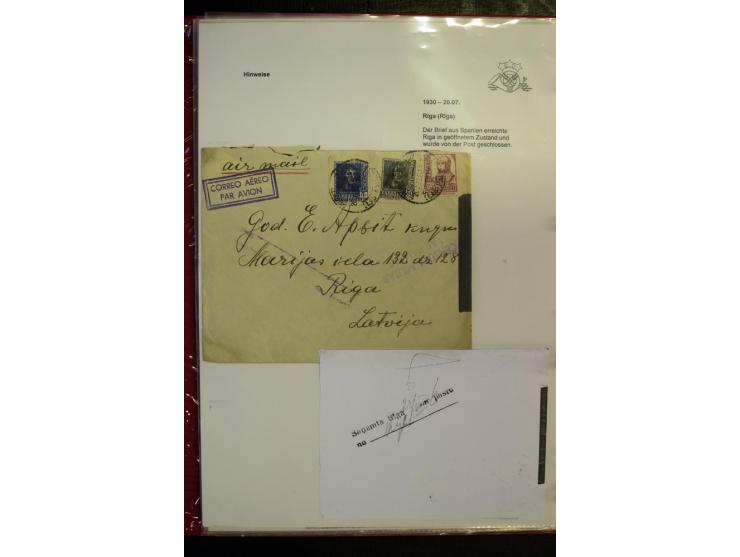 Hinweise
1930 – 20.07.
Riga (Rīga)
Der Brief aus Spanien erreichte
Riga in geöffnetem Zustand und
wurde von der Post geschlossen.
air mail
CORREO AÉREO
PAR AVION
God. E. Apsit kungs
Marijas iela 132 dz 128
Riga
Latvija
Saņemts
no